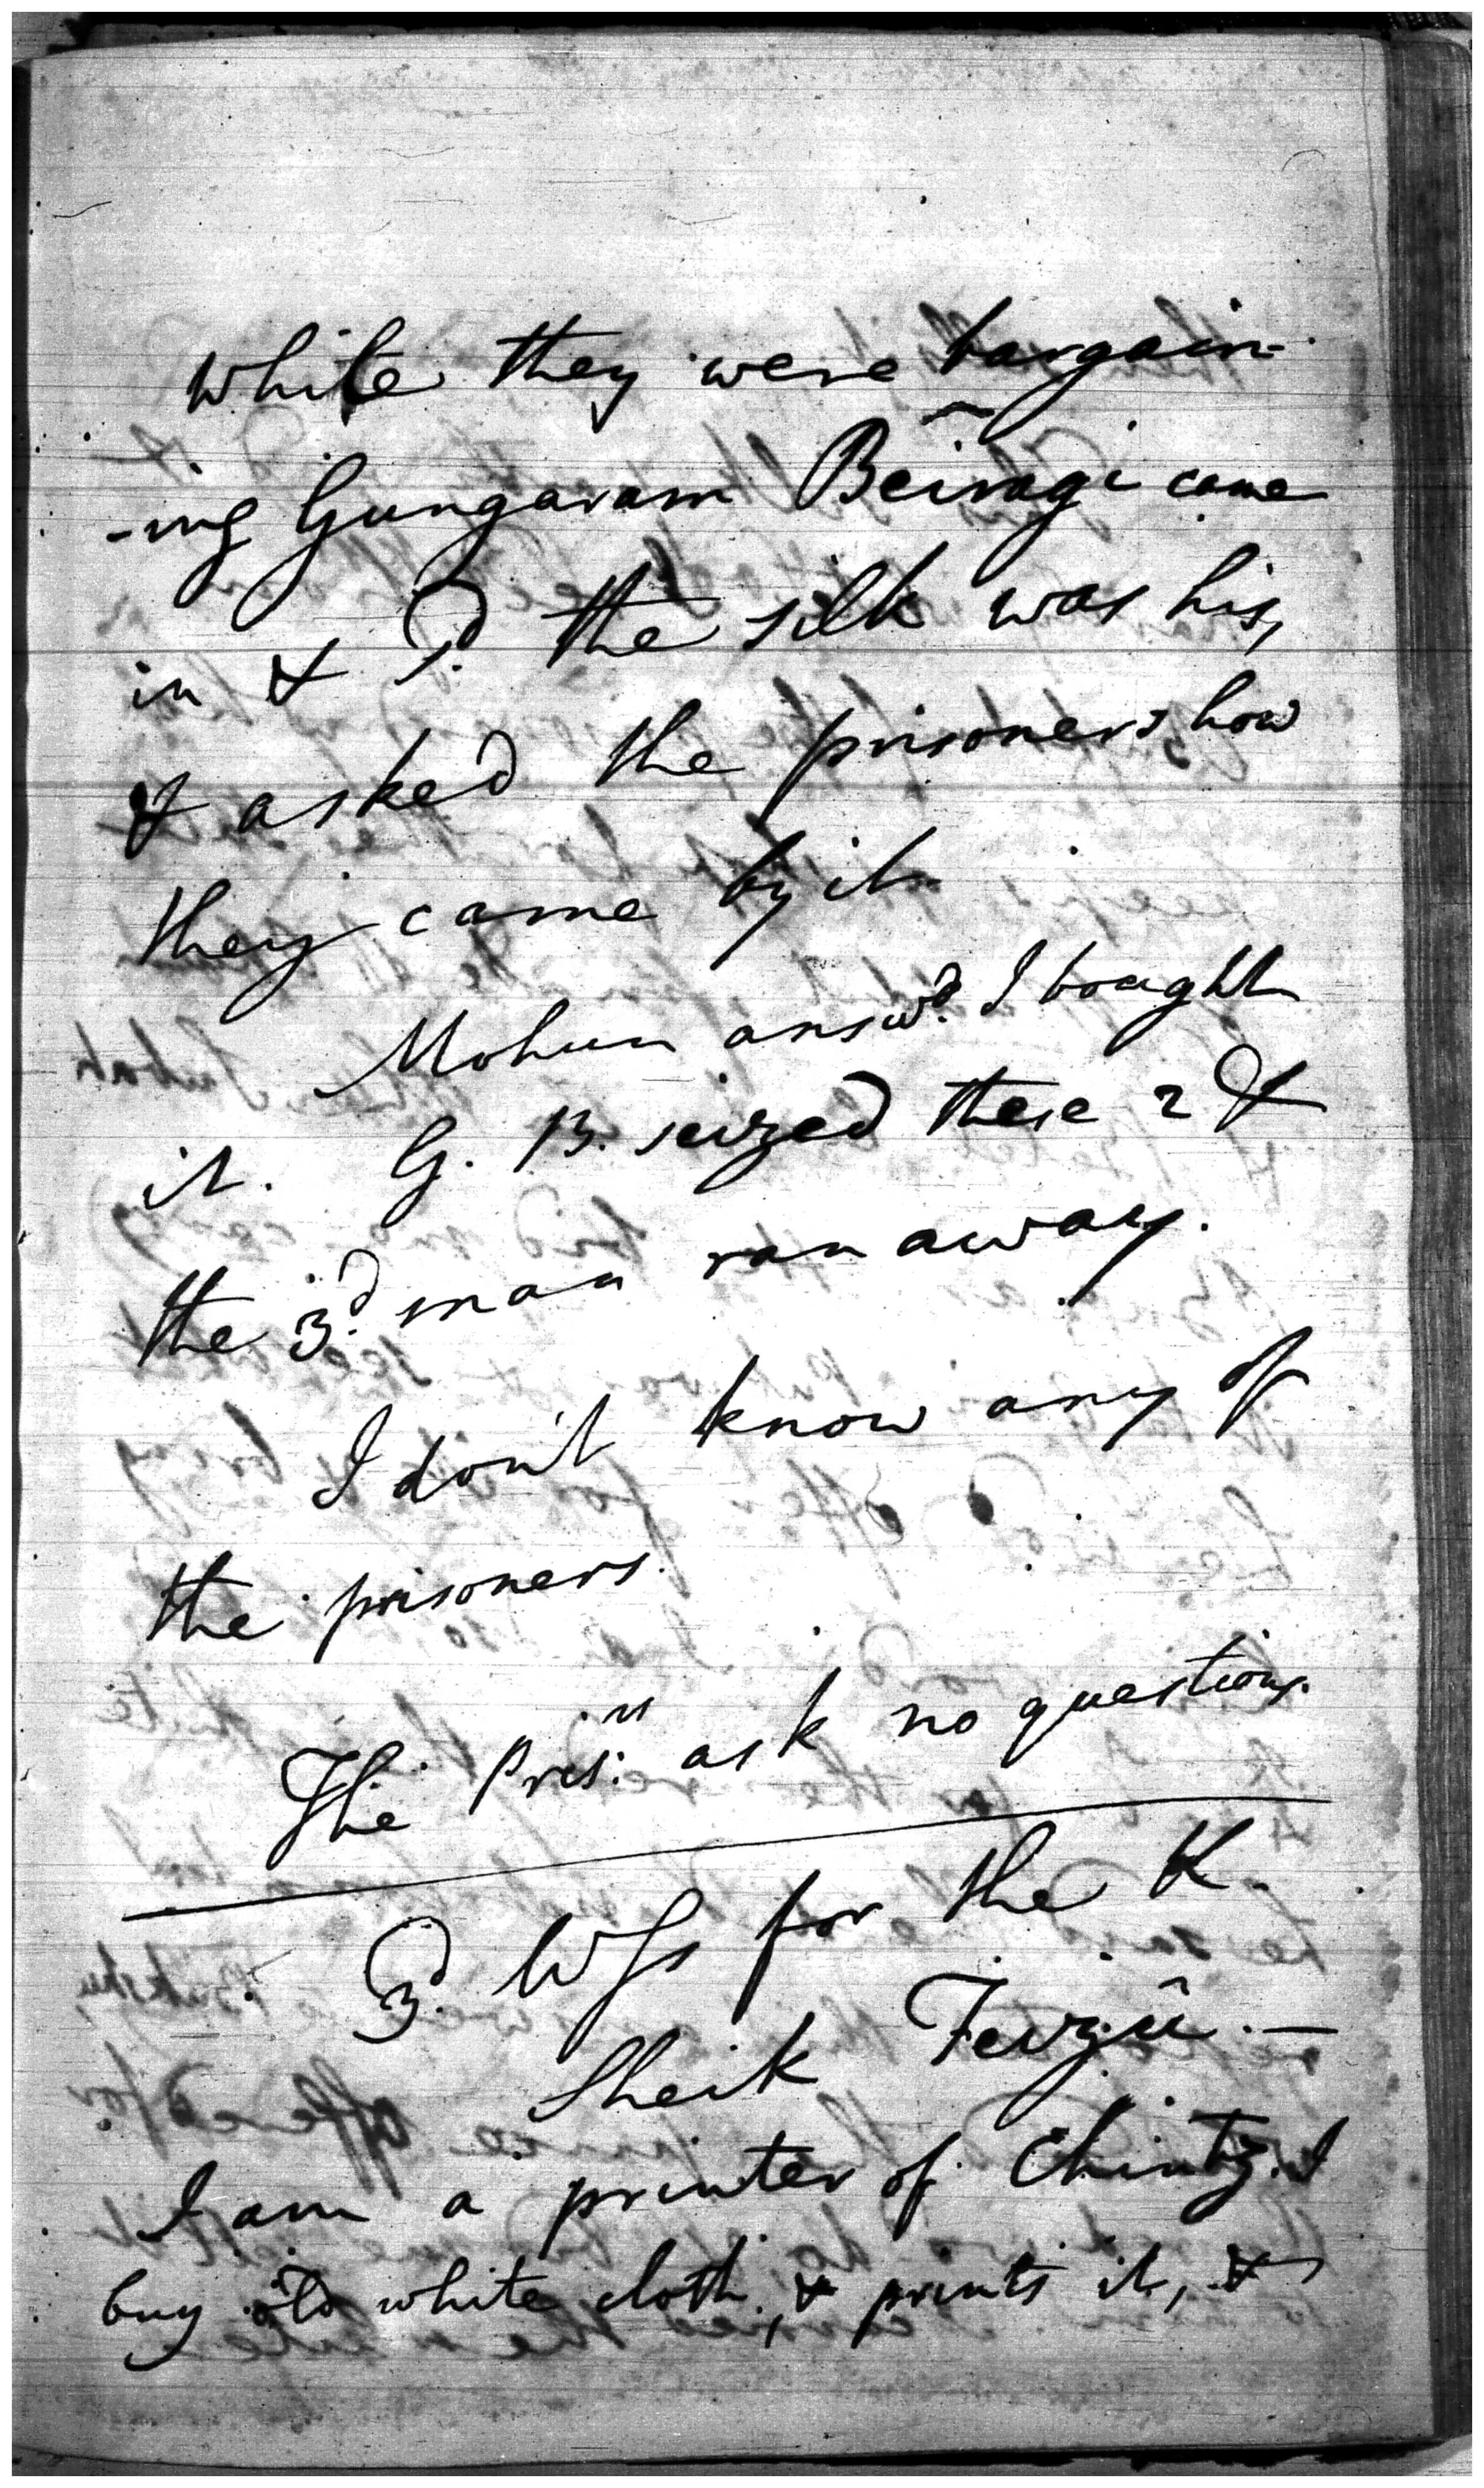 while they were bargain-
-ing Gungaram Beiragi came
in & sd. the silk was his,
& asked the prisoners, how
they came by it.
Mohun answd. I bought
it. G. B. seized these 2 &
the 3d. man ran away.
I don't know any of
the prisoners.
The Prisrs. ask no questions.
3d. Ws for the K.
Sheik
I am a printer of Chintz. I
buy old white cloth, & prints it, &